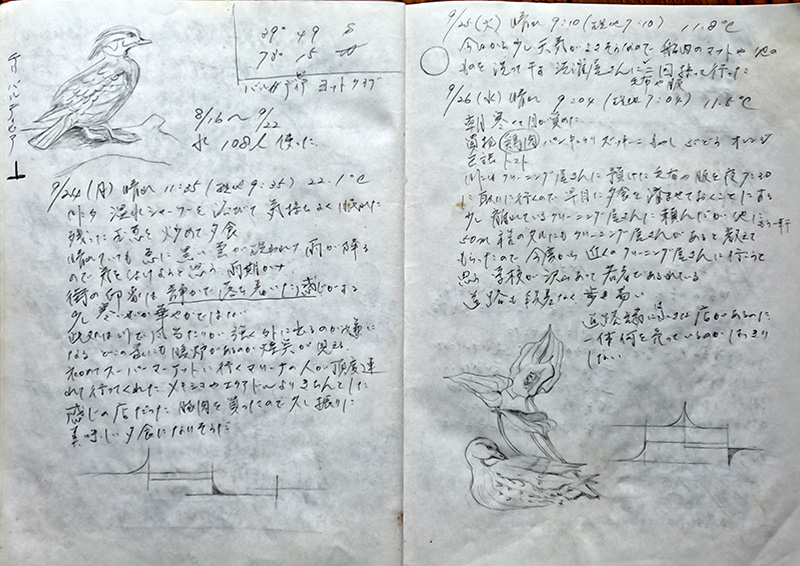 チリ バルディビア
39° 49 S
73° 15 W
バルディビア ヨットクラブ
8/16〜9/22
水 108人 使った
9/24 (月) 晴れ 11:35 (現地 9:35) 22.1℃
温水シャワーを浴びて 気持よく眠れた
残った を炒めて夕食
晴れていても 急に 黒い雲が 現われて 雨が降る
ので 気をつけようと思う 雨期か
街の印象は 静かで落ち着いた感じがする
少し寒いせいか華やかではない
なる どの家にも暖炉があるのか 煙突が見える
スーパーマーケットに行く マリーナの人が 丁度連
れて行ってくれた メキシコやエクアドルよりきちんとした
感じの店だった 豚肉を買ったので久し振りに
美味しい夕食になりそうだ
9/25 (火) 晴れ 9:10 (現地 7:10) 11.8℃
今日から少し天気がよさそうなので 船内のマットや 他の
ものを洗って干す 洗濯屋さんに 二回 持って行った
毛布や服
9/26 (水) 晴れ 9:04 (現地 7:04) 11.5℃
朝 寒くて目が覚めた
買物 鶏肉 パン キャベツ ズッキーニ もやし ぶどう オレンジ
トマト
クリーニング屋さんに 預けた毛布や服を夜 7:30
に取りに行くので 早目に夕食を済ませておくことにする
少し離れているクリーニング屋さんに頼んだが 他にもう一軒
50m 程の所にもクリーニング屋さんがあると教えて
もらったので 今度から 近くのクリーニング屋さんに行こうと
思う 学校が沢山あって若者であふれている
道路も段差なく 歩き易い
道路端に 小さな店があるが
一体何を売っているのかはっきり
しない